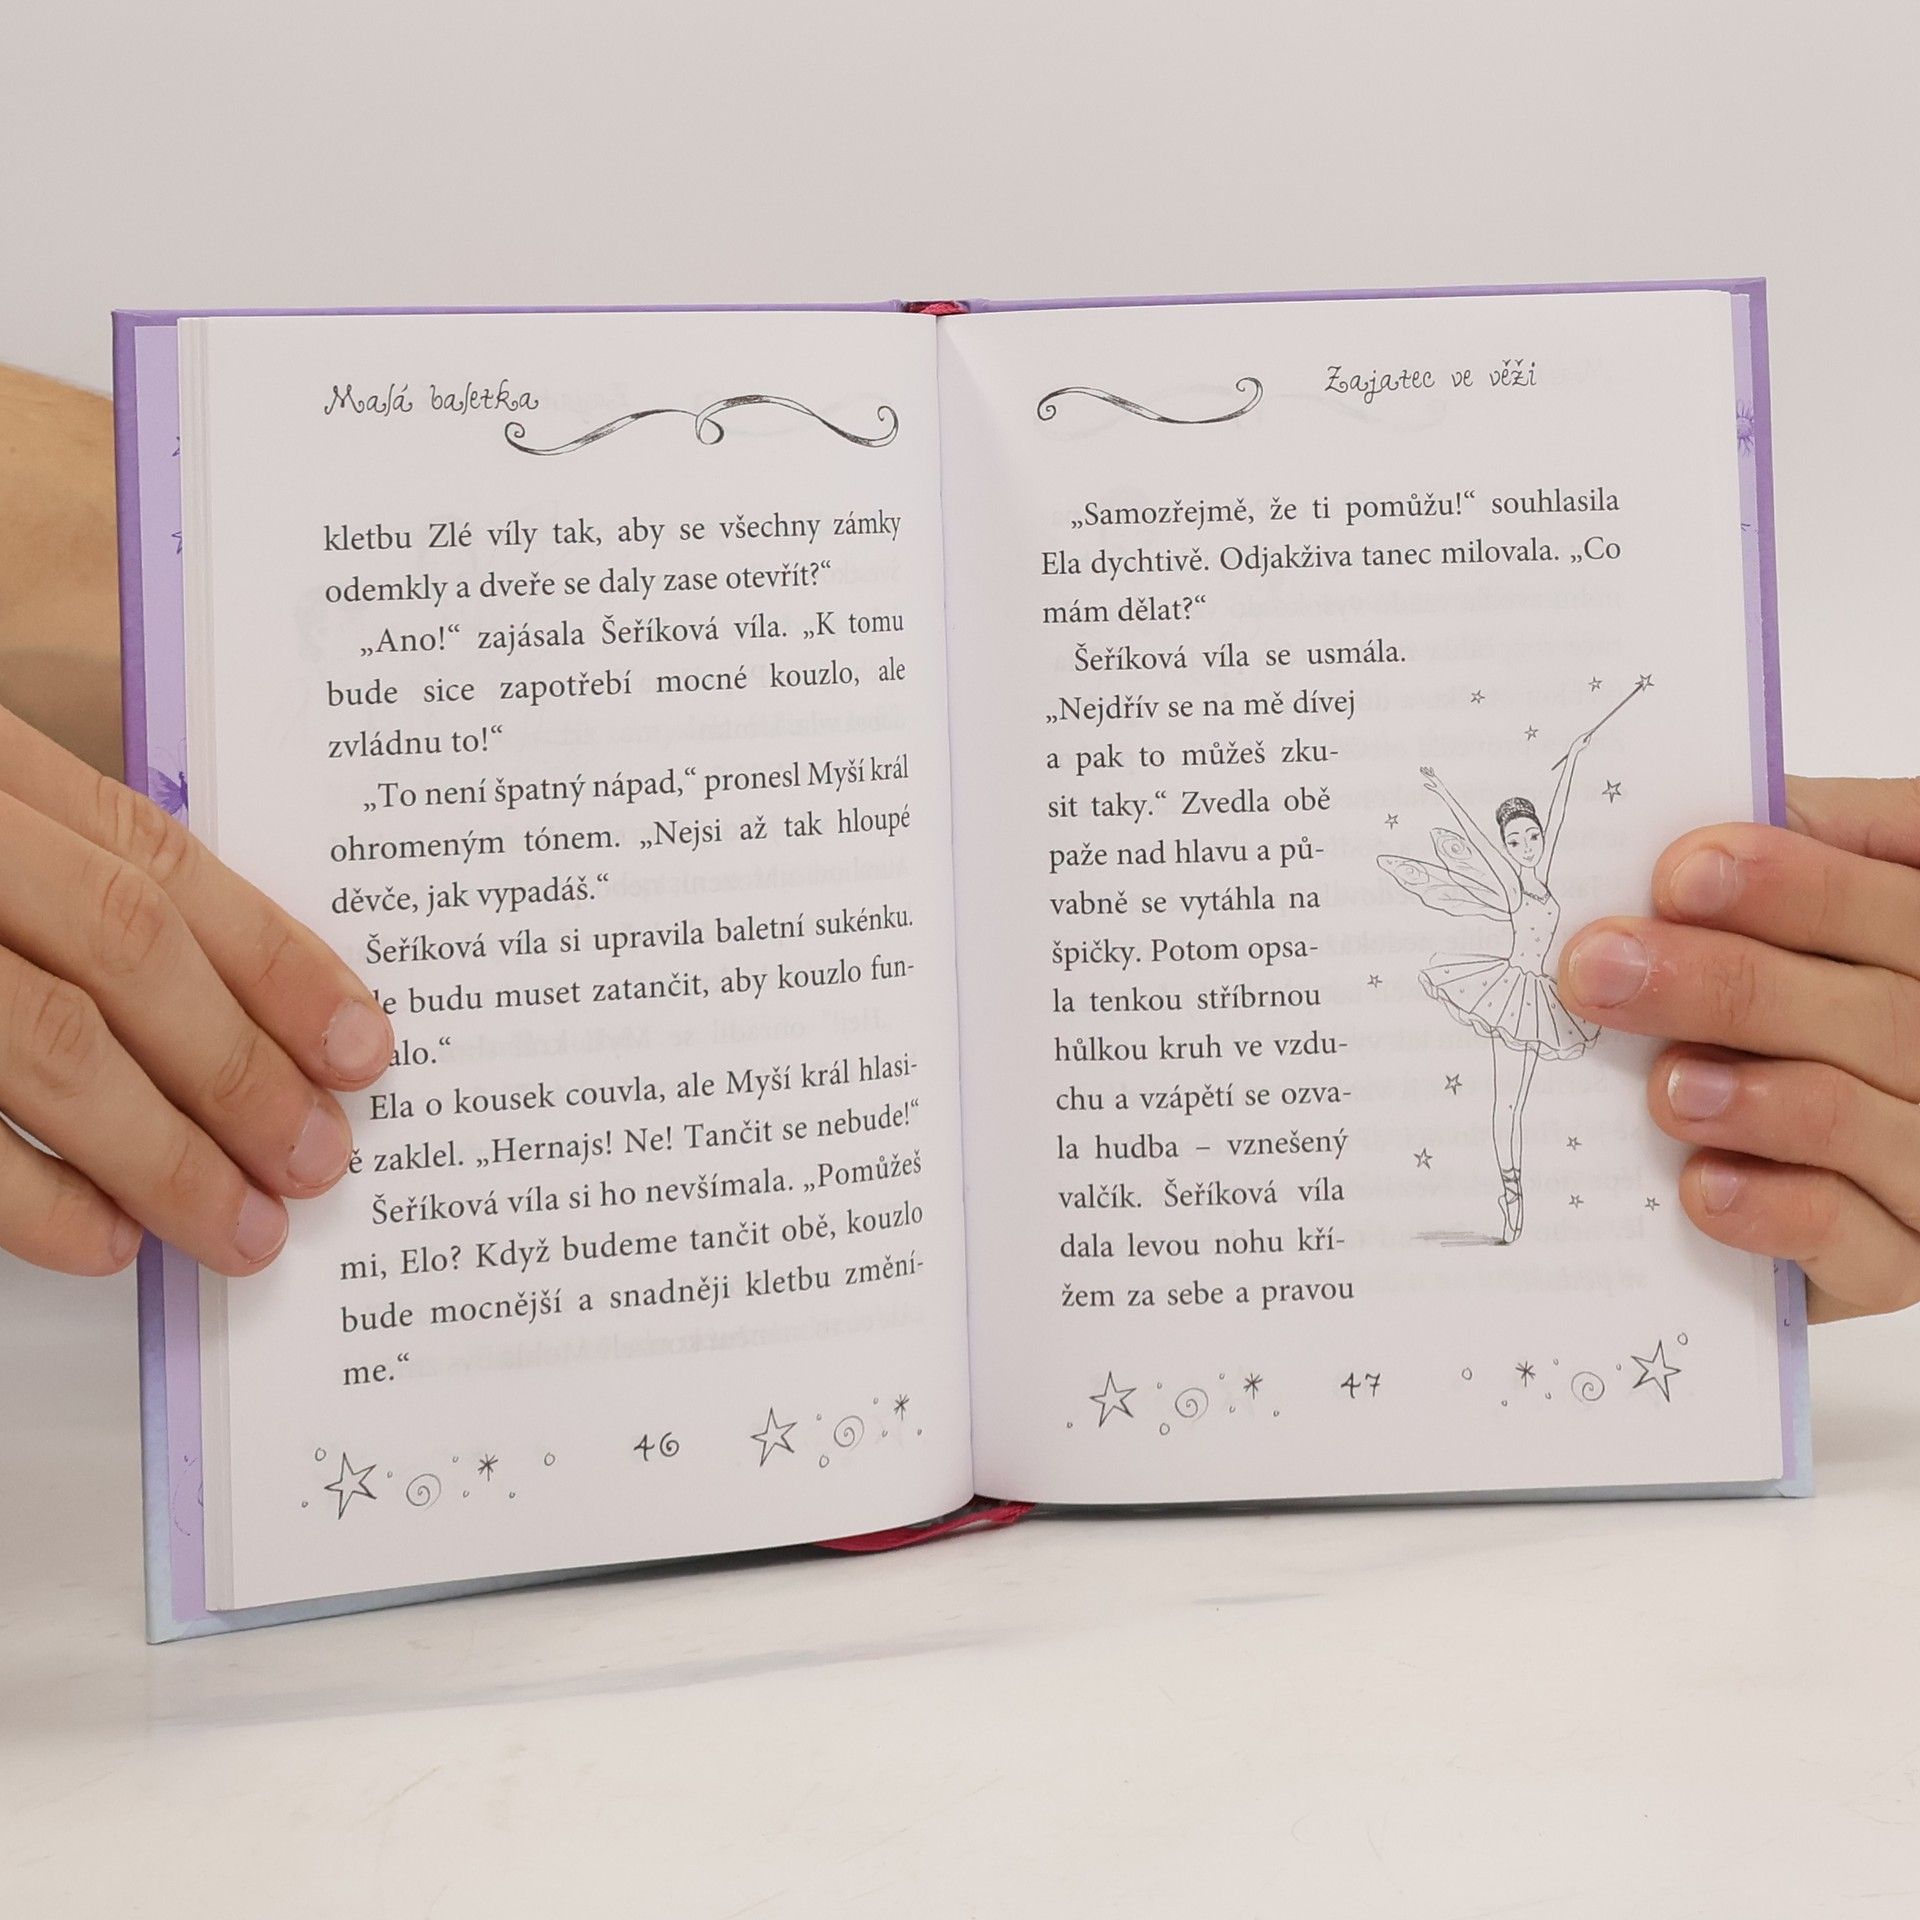 Malá baletka
kletbu Zlé víly tak, aby se všechny zámky
odemkly a dveře se daly zase otevřít?“
„Ano!“ zajásala Šeříková víla. „K tomu
bude sice zapotřebí mocné kouzlo, ale
zvládnu to!“
„To není špatný nápad,“ pronesl Myší král
ohromeným tónem. „Nejsi až tak hloupé
děvče, jak vypadáš.“
Šeříková víla si upravila baletní sukénku.
budu muset zatančit, aby kouzlo fun-
Ela o kousek couvla, ale Myší král hlasi-
zaklel. „Hernajs! Ne! Tančit se nebude!“
Šeříková víla si ho nevšímala. „Pomůžeš
mi, Elo? Když budeme tančit obě, kouzlo
bude mocnější a snadněji kletbu změní-
me.“
46
Zajatec ve věži
„Samozřejmě, že ti pomůžu!“ souhlasila
Ela dychtivě. Odjakživa tanec milovala. „Co
mám dělat?“
Šeříková víla se usmála.
„Nejdřív se na mě dívej
a pak to můžeš zku-
sit taky.“ Zvedla obě
paže nad hlavu a pů-
vabně se vytáhla na
špičky. Potom opsa-
la tenkou stříbrnou
hůlkou kruh ve vzdu-
chu a vzápětí se ozva-
la hudba – vznešený
valčík. Šeříková víla
dala levou nohu kří-
žem za sebe a pravou
47